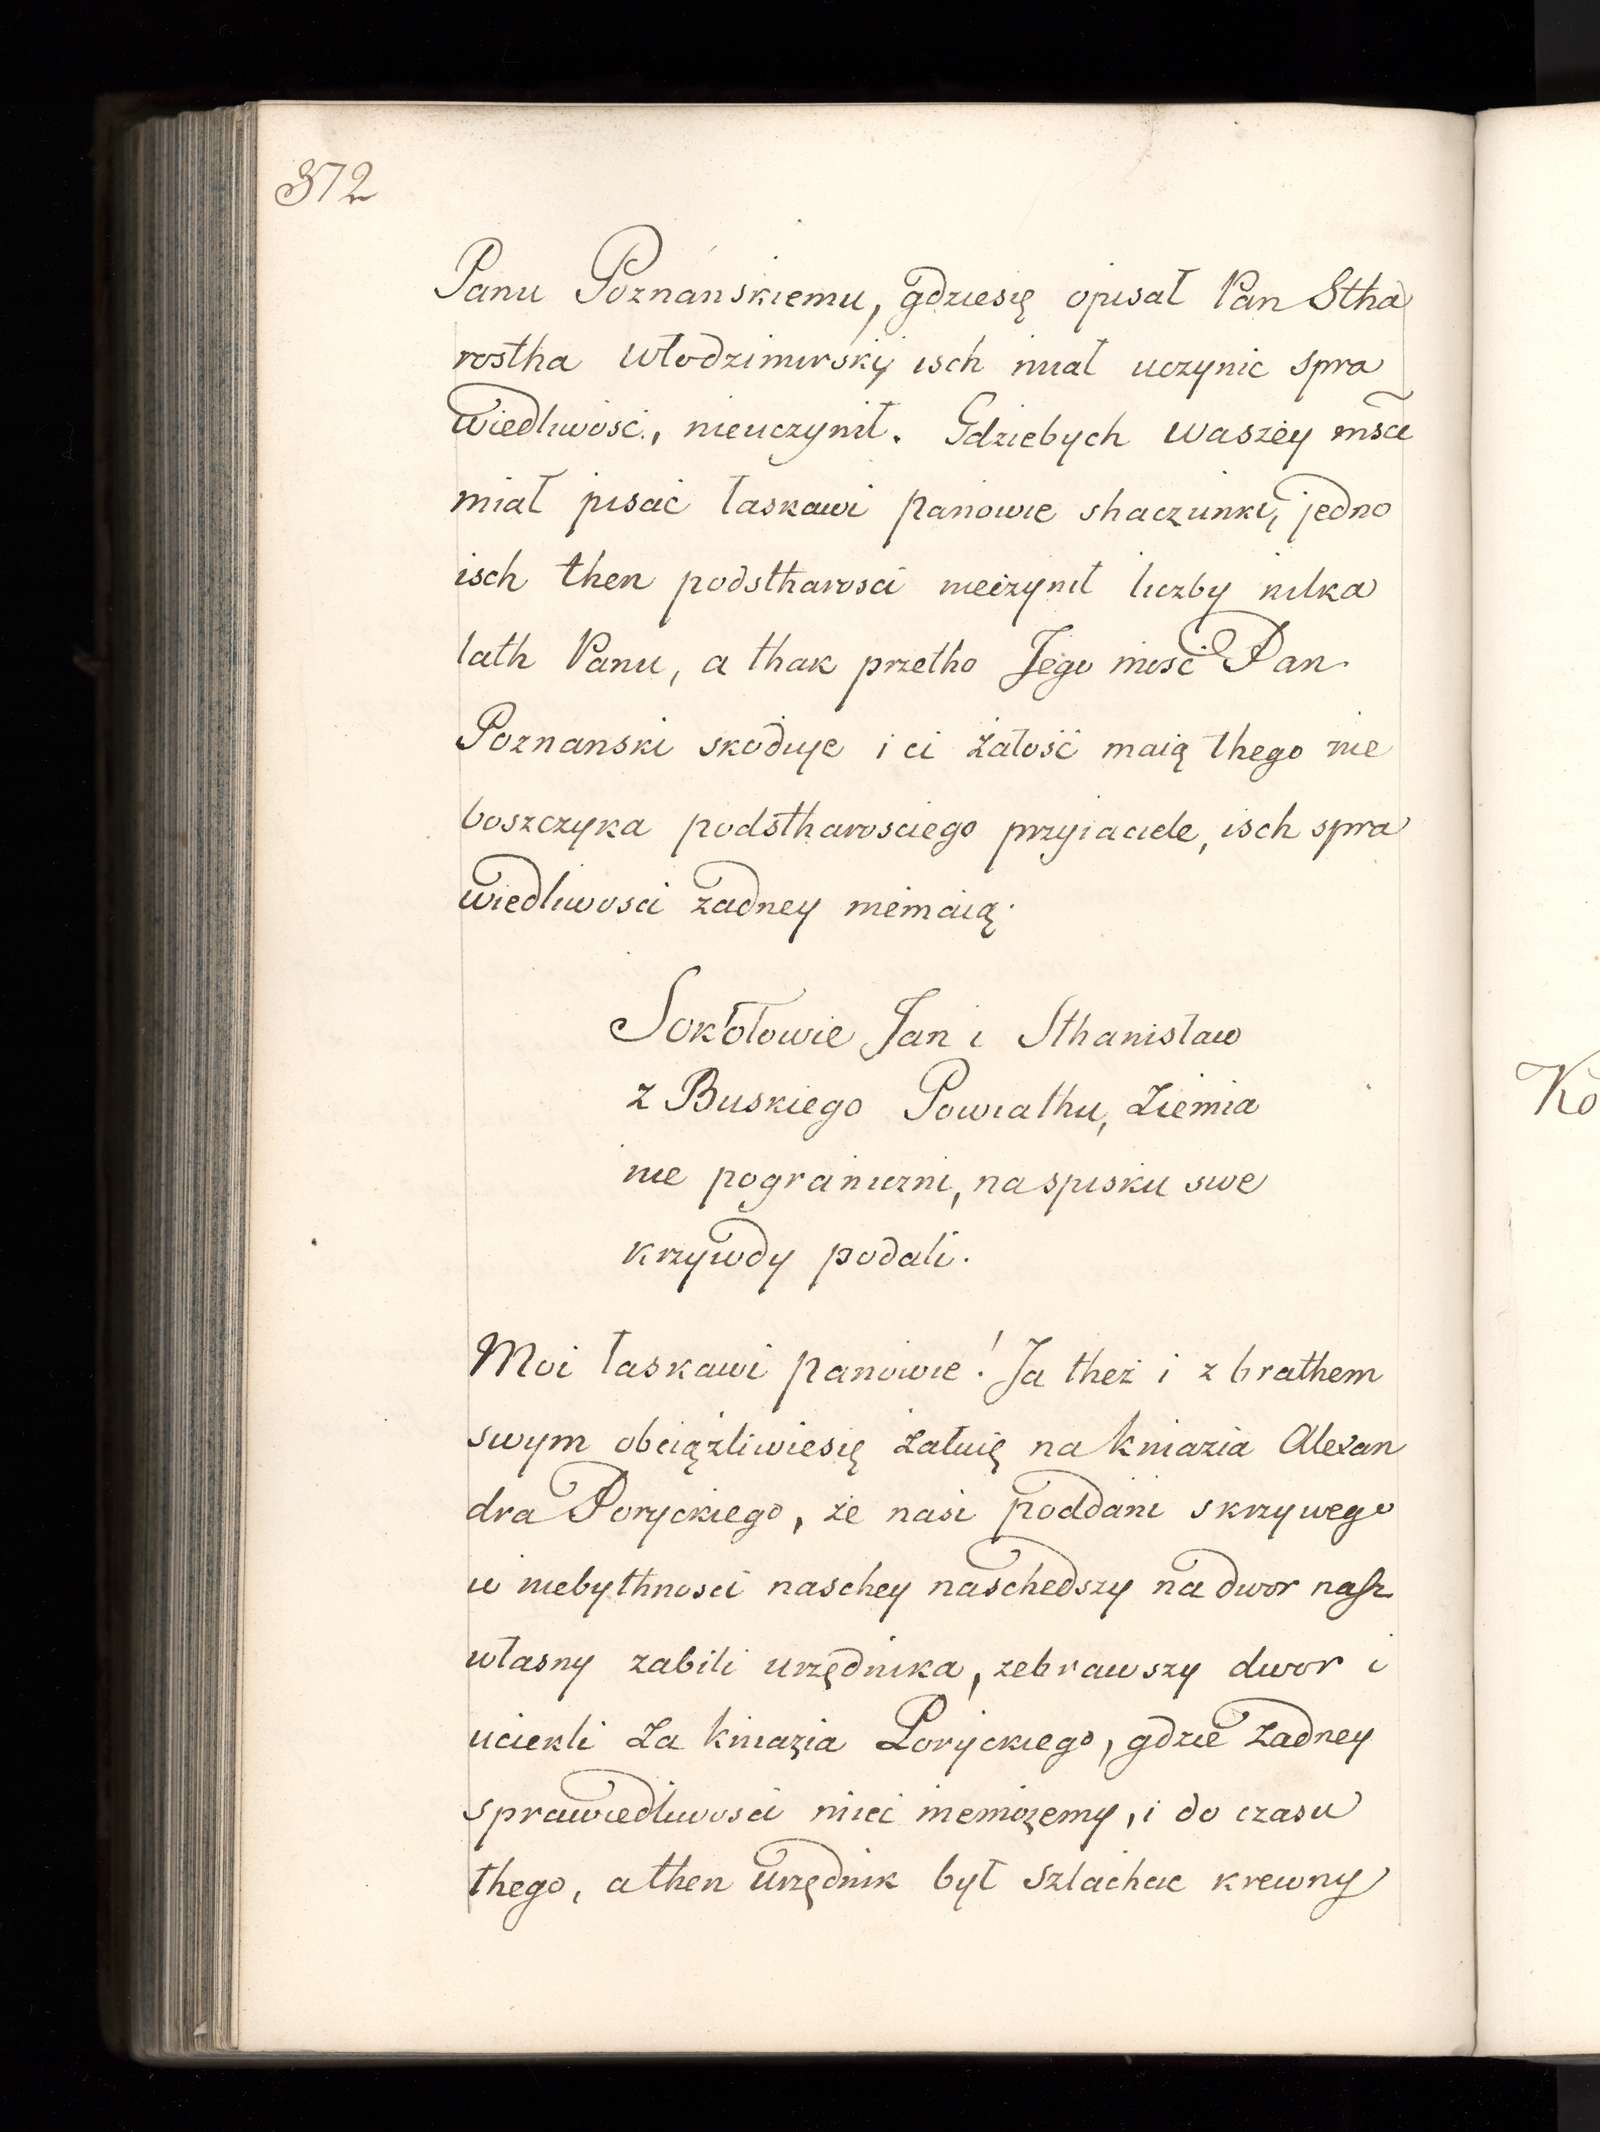 372
Panu Poznańskiemu, gdziesię opisał Pan Stha
rostha Włodzimirskij isch miał uczynic spra
wiedliwość, nieuczynił. Gdziebych waszey msce
miał pisać łaskawi panowie shaczunki, jedno
isch then podstharosci nieczynił liczby kilka
lath Panu, a thak przetho Jego mosć Pan
Poznanski skoduje i ci żałość maią thego nie
boszczyka podstharosciego przyiaciele, isch spra
wiedliwosci żadney niemaią.
Sokołowie Jan i Sthanisław
z Buskiego Powiathu, Ziemia
nie pograniczni, na spisku swe
krzywdy podali.
Moi łaskawi panowie! Ja theż i z brathem
swym obciążliwiesię żałuię na kniazia Alexan
dra Poryckiego, że nasi poddani skrzywego
w niebythnosci naschey naschedszy na dwor nasz
własny zabili urzędnika, zebrawszy dwor i
uciekli za kniazia Poryckiego, gdzie żadney
sprawiedliwosci mieć niemożemy, i do czasu
thego, a then urzędnik był szlachcic krewny
Ko